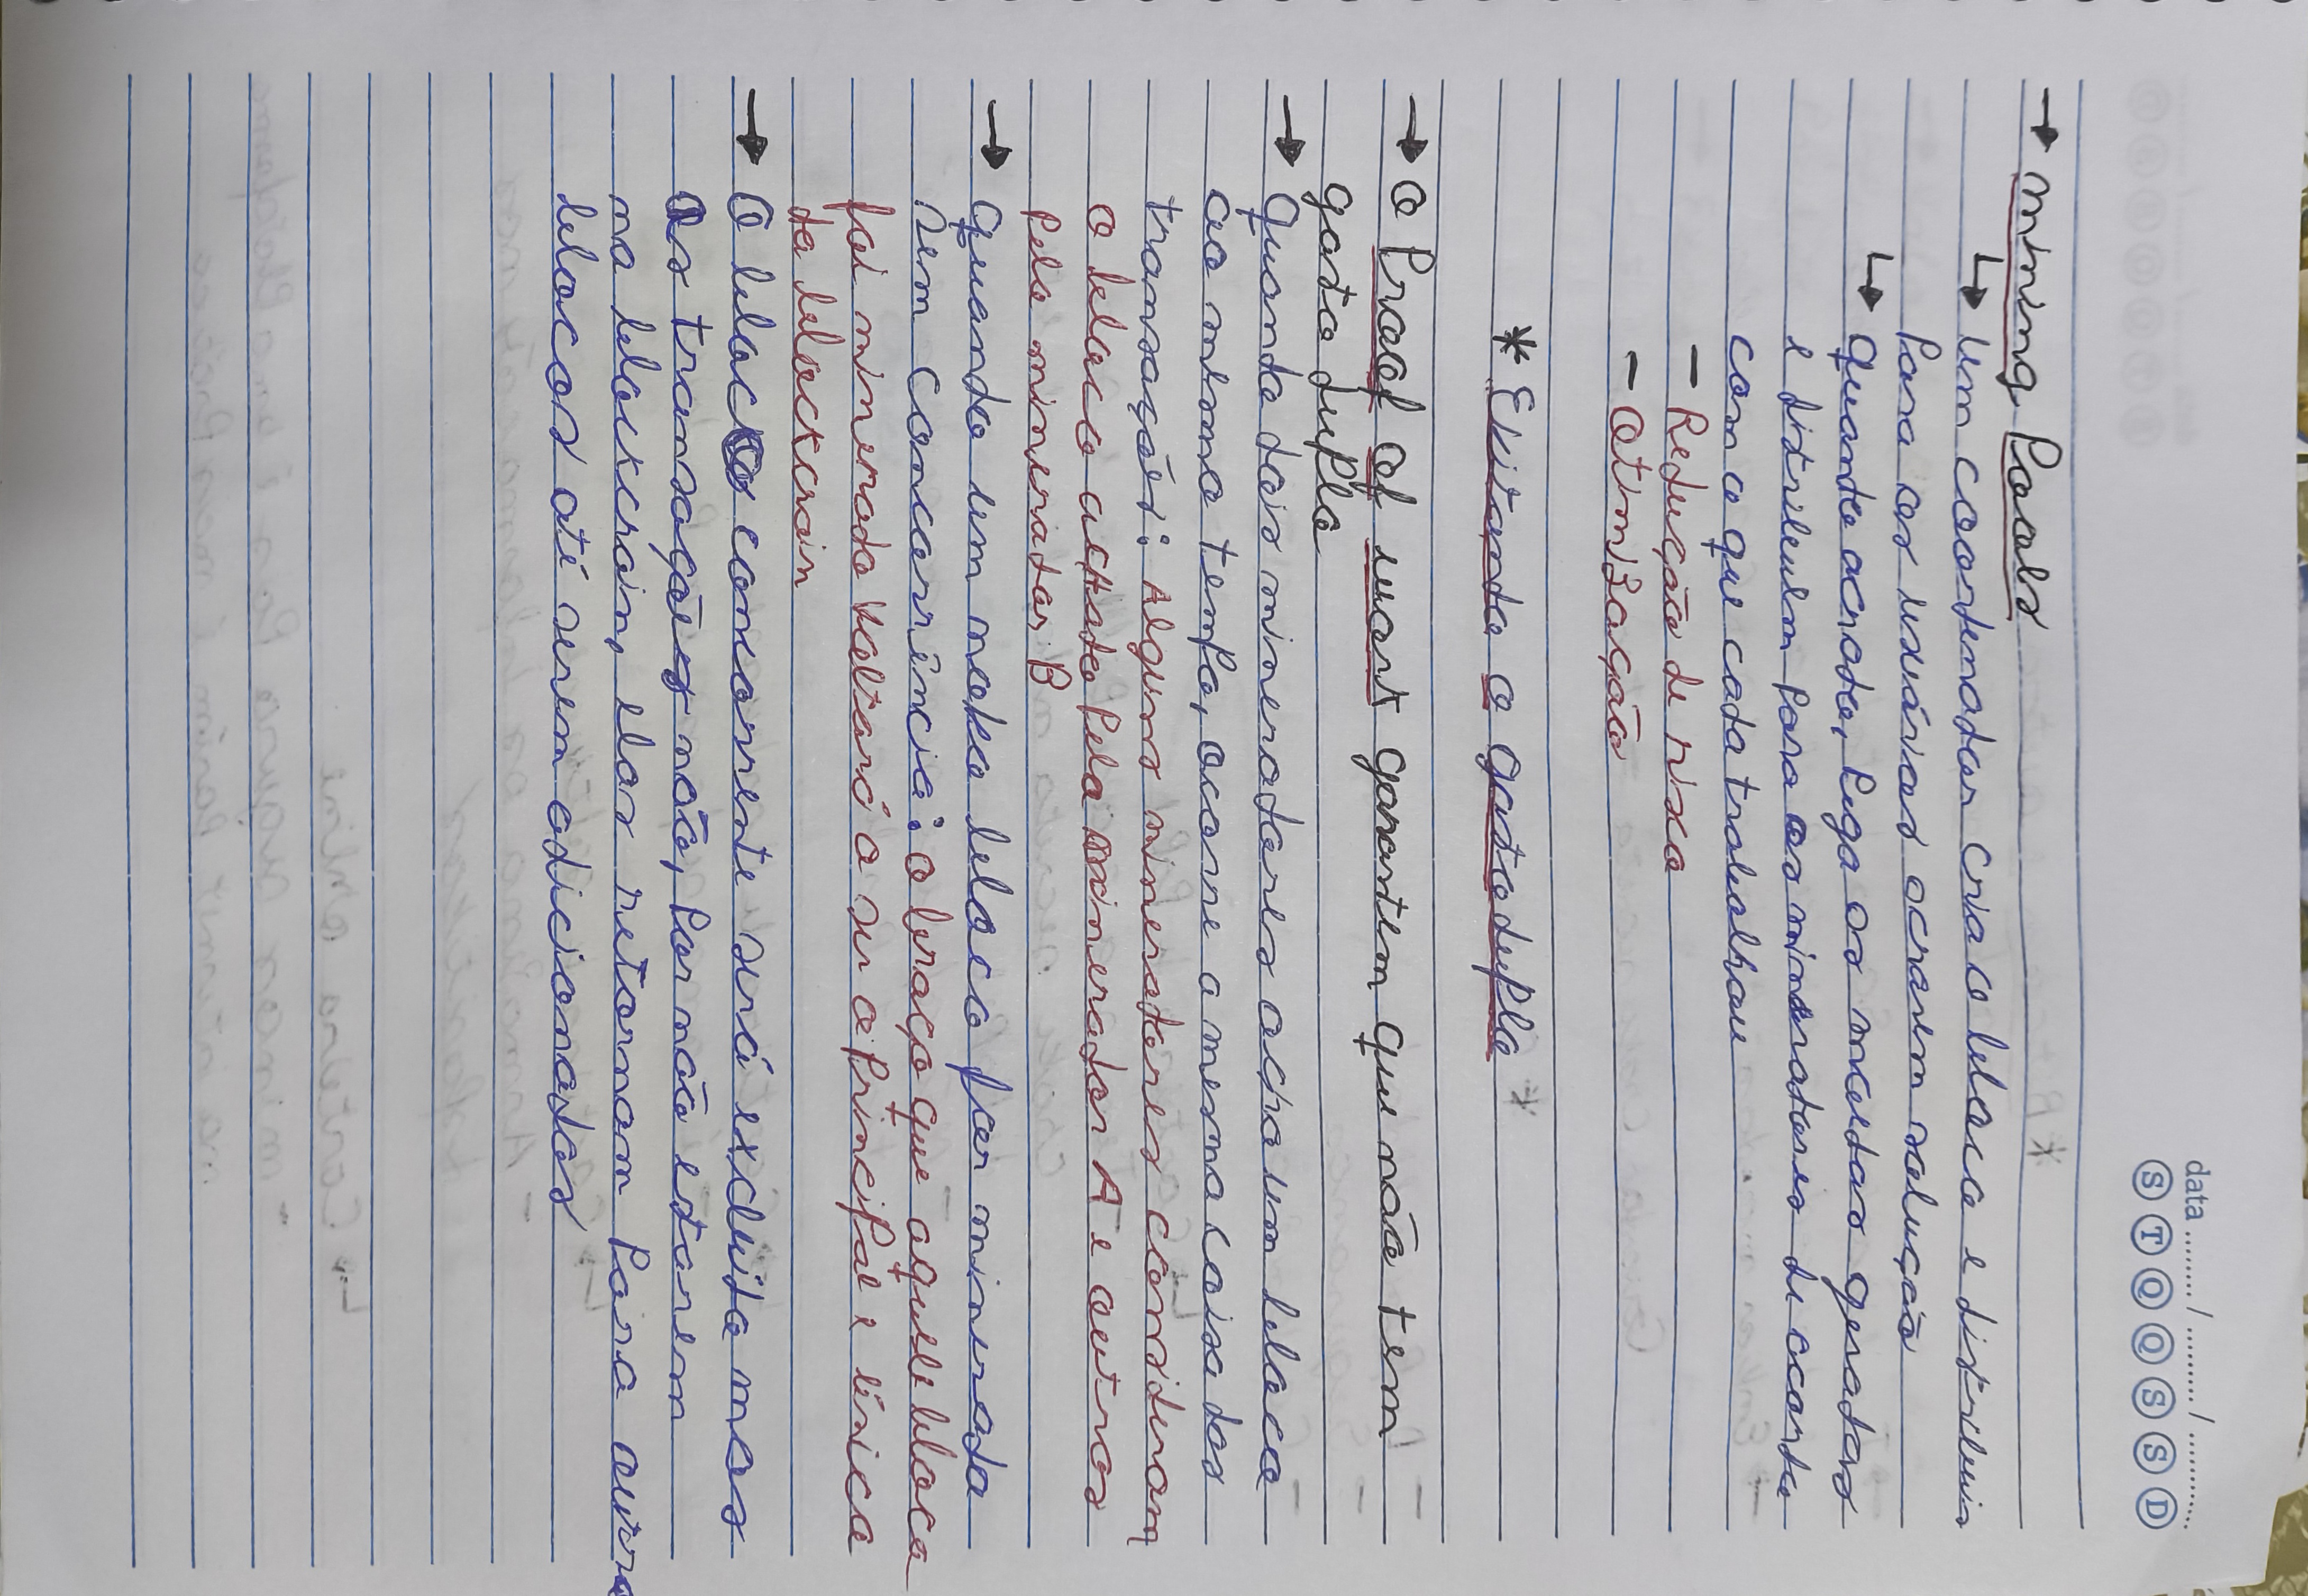 data ......../ ........./ ............
S T Q Q S S D
→ mining Pools
↳ um coordenador cria o bloco e distribuis
Para os usuários acharem solução
↳ quando achado, Pega as moedas geradas
e distribuem para os mineradores de acordo
com o que cada trabalhou
- Redução de risco
- Otimização
* Evitando o gasto duplo *
→ O Proof of work garantem que não tem
gasto duplo
→ quando dois mineradores acha um bloco
ao mesmo tempo, ocorre a mesma coisa das
transações: Alguns mineradores consideram
o bloco achado Pelo minerador A e outros
Pelo minerador B
→ quando um novo bloco for minerado
sem concorrência: o braço que aquele bloco
foi minerado voltará a ser o principal e único
da blockchain
→ O bloco concorrente será excluído mas
As transações não, Por não estarem
na blockchain, elas retornam Para outro
blocos até serem adicionadas